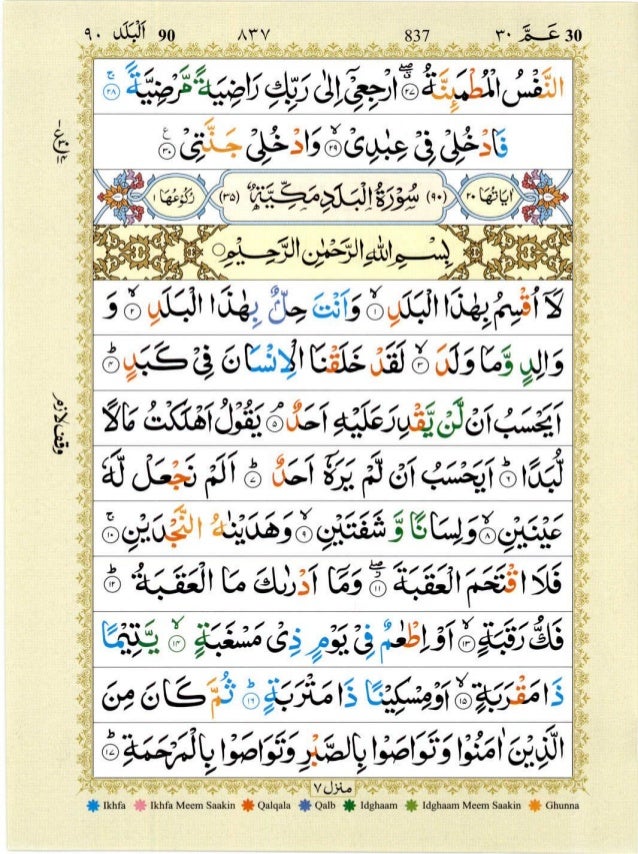 ٩٠ اَلْبَلَد 90 ٨٣٧ 837 ٣٠ عَمَّ 30
النَّفْسُ الْمُطْمَئِنَّةُ ۝٢٧ ارْجِعِيْٓ اِلٰى رَبِّكِ رَاضِيَةً مَّرْضِيَّةً ۝٢٨
فَادْخُلِيْ فِيْ عِبٰدِيْ ۝٢٩ وَادْخُلِيْ جَنَّتِيْ ۝٣٠
اٰيَاتُهَا ٢٠ (٩٠) سُوْرَةُ الْبَلَدِ مَكِّيَّةٌ (٣٥) رُكُوْعُهَا ١
بِسْمِ اللّٰهِ الرَّحْمٰنِ الرَّحِيْمِ
لَآ اُقْسِمُ بِهٰذَا الْبَلَدِ ۝١ وَاَنْتَ حِلٌّۢ بِهٰذَا الْبَلَدِ ۝٢ وَ
وَالِدٍ وَّمَا وَلَدَ ۝٣ لَقَدْ خَلَقْنَا الْاِنْسَانَ فِيْ كَبَدٍ ۝٤
اَيَحْسَبُ اَنْ لَّنْ يَّقْدِرَ عَلَيْهِ اَحَدٌ ۝٥ يَقُوْلُ اَهْلَكْتُ مَالًا
لُّبَدًا ۝٦ اَيَحْسَبُ اَنْ لَّمْ يَرَهٗٓ اَحَدٌ ۝٧ اَلَمْ نَجْعَلْ لَّهٗ
عَيْنَيْنِ ۝٨ وَلِسَانًا وَّ شَفَتَيْنِ ۝٩ وَهَدَيْنٰهُ النَّجْدَيْنِ ۝١٠
فَلَا اقْتَحَمَ الْعَقَبَةَ ۝١١ وَمَآ اَدْرٰىكَ مَا الْعَقَبَةُ ۝١٢
فَكُّ رَقَبَةٍ ۝١٣ اَوْ اِطْعٰمٌ فِيْ يَوْمٍ ذِيْ مَسْغَبَةٍ ۝١٤ يَّتِيْمًا
ذَا مَقْرَبَةٍ ۝١٥ اَوْ مِسْكِيْنًا ذَا مَتْرَبَةٍ ۝١٦ ثُمَّ كَانَ مِنَ
الَّذِيْنَ اٰمَنُوْا وَتَوَاصَوْا بِالصَّبْرِ وَتَوَاصَوْا بِالْمَرْحَمَةِ ۝١٧
وقف لازم
منزل ٧
Ikhfa Ikhfa Meem Saakin Qalqala Qalb Idghaam Idghaam Meem Saakin Ghunna